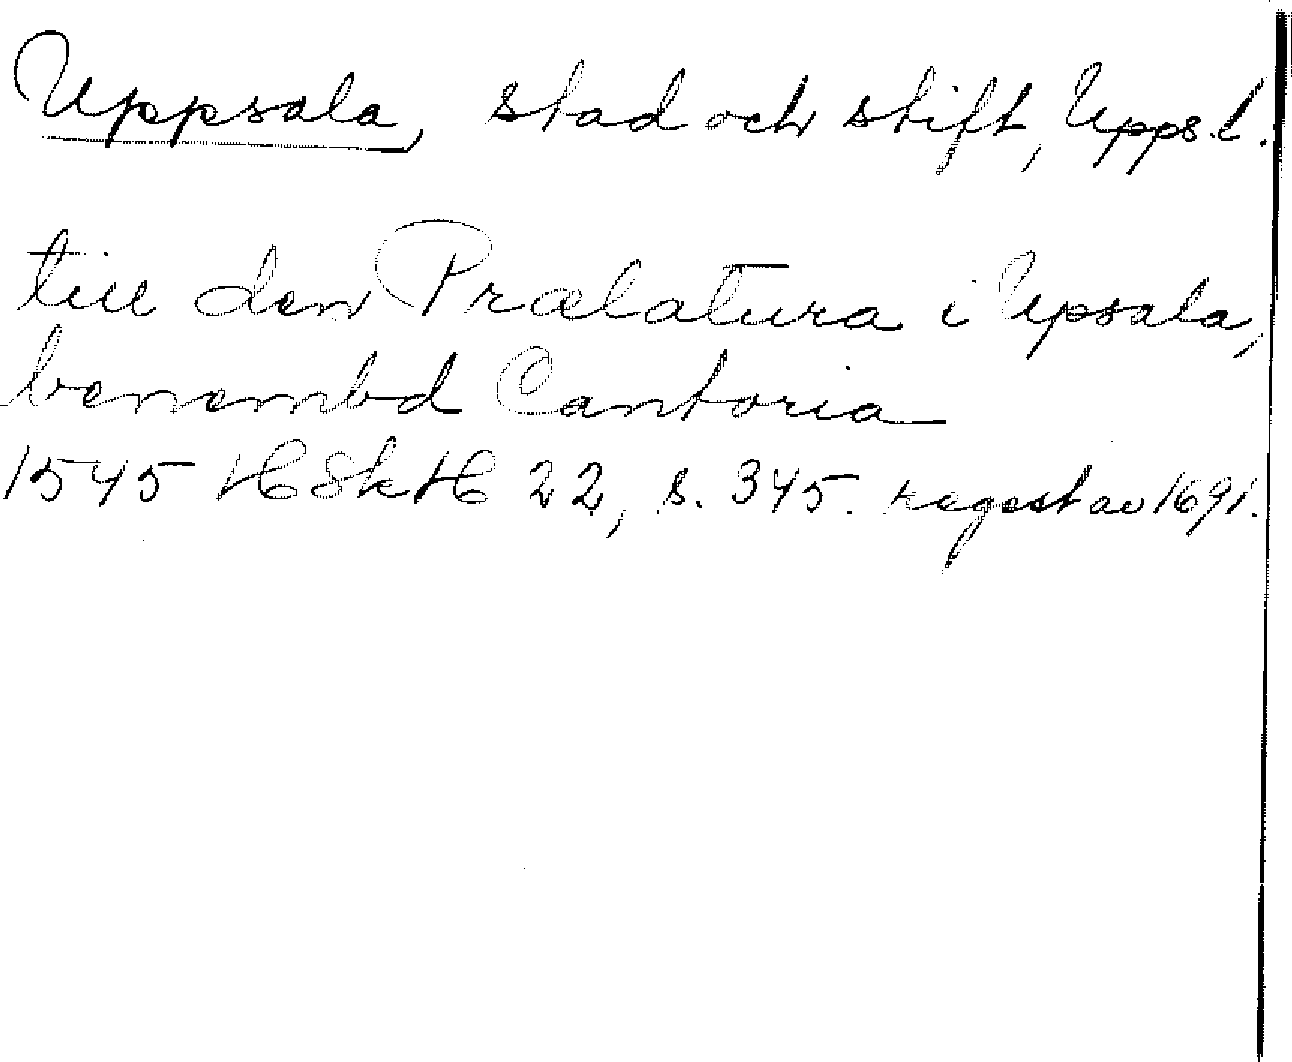 Uppsala, stad och stift, Upps.l.
till den Prælatura i Upsala,
benembd Cantoria
1545 HSkH 22, s. 345. regest av 1691.